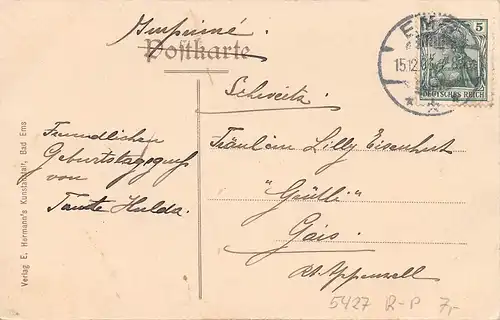 Imprimé.
Postkarte
EMS
15.12.03
5
DEUTSCHES REICH
Schweitz
Freundlichen
Geburtstagsgruß
von
Tante Hulda.
Fräulein Lilly Eisenhut
"Grütli"
Gais
Kt. Appenzell
5427 R-P 7,-
Verlag E. Hermann's Kunstanstalt, Bad Ems